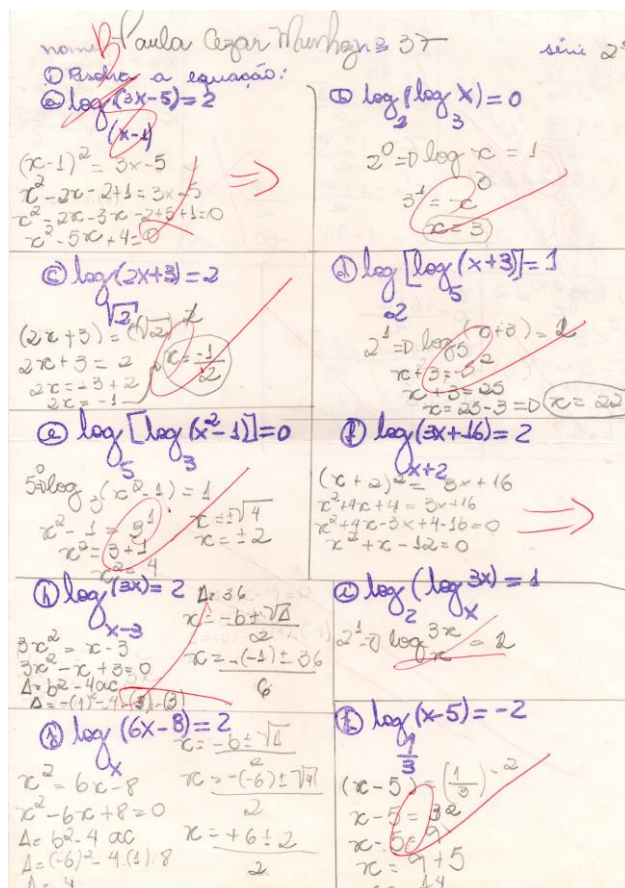 nome Paula Cezar Munhoz nº 37 série 2ª
① Resolva a equação:
ⓐ log(x-1) (3x-5) = 2
(x-1)² = 3x-5
x² - 2x - 2+1 = 3x-5
x² - 2x - 3x - 2+5+1=0
x² - 5x + 4 = 0
ⓑ log₂ (log₃ x) = 0
2⁰ ⇒ log₃ x = 1
3¹ = x
x = 3
ⓒ log√2 (2x+3) = 2
(2x+3) = (√2)²
2x+3 = 2
2x = -3+2
2x = -1
x = -1/2
ⓓ log₂ [log₅ (x+3)] = 1
2¹ ⇒ log₅ (x+3) = 2
x+3 = 5²
x+3 = 25
x = 25-3 ⇒ x = 22
ⓔ log₅ [log₃ (x²-1)] = 0
5⁰ ⇒ log₃ (x²-1) = 1
x² - 1 = 3¹
x² = 3+1
x² = 4
x = ±√4
x = ±2
ⓕ log x+2 (3x+16) = 2
(x+2)² = 3x+16
x²+4x+4 = 3x+16
x²+4x-3x+4-16=0
x²+x-12=0
ⓗ log x-3 (3x) = 2
3x² = x-3
3x²-x+3=0
Δ= b²-4ac
Δ= -(1)²-4·(3)·(3)
Δ= 36
x = -b±√Δ/2
x = -(-1)±36/6
ⓘ log₂ (log x 3x) = 1
2¹ ⇒ log x 3x = 2
log x (6x-8) = 2
x² = 6x-8
x²-6x+8=0
Δ= b²-4·ac
Δ= (-6)²-4·(1)·8
Δ= 4
x = -b±√Δ/2
x = -(-6)±√4/2
x = +6±2/2
log 1/3 (x-5) = -2
(x-5) = (1/3)⁻²
x-5 = 3²
x-5 = 9
x = 9+5
14